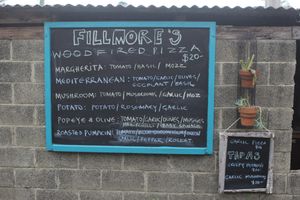 FILLMORE'S
WOODFIRED PIZZA
$20-
MARGHERITA: TOMATO/BASIL/ MOZZ
MEDITERRANEAN: TOMATO/GARLIC/OLIVES/
EGGPLANT/BASIL
MUSHROOM: TOMATO/MUSHROOMS/GARLIC/MOZ
POTATO: POTATO/ROSEMARY/GARLIC
POPEYE & OLIVE: TOMATO/GARLIC/OLIVES/
ROASTED PUMPKIN:
GARLIC PIZZA
TAPAS